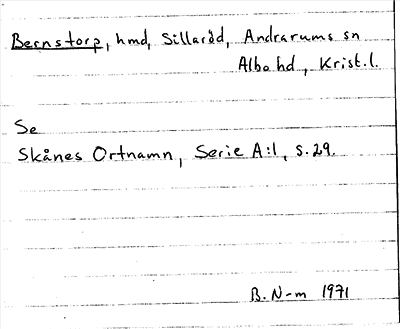 Bernstorp, hmd, Sillaröd, Andrarums sn
Albo hd, Krist.l.
Se
Skånes Ortnamn, Serie A:1, s. 29.
B. N-m 1971